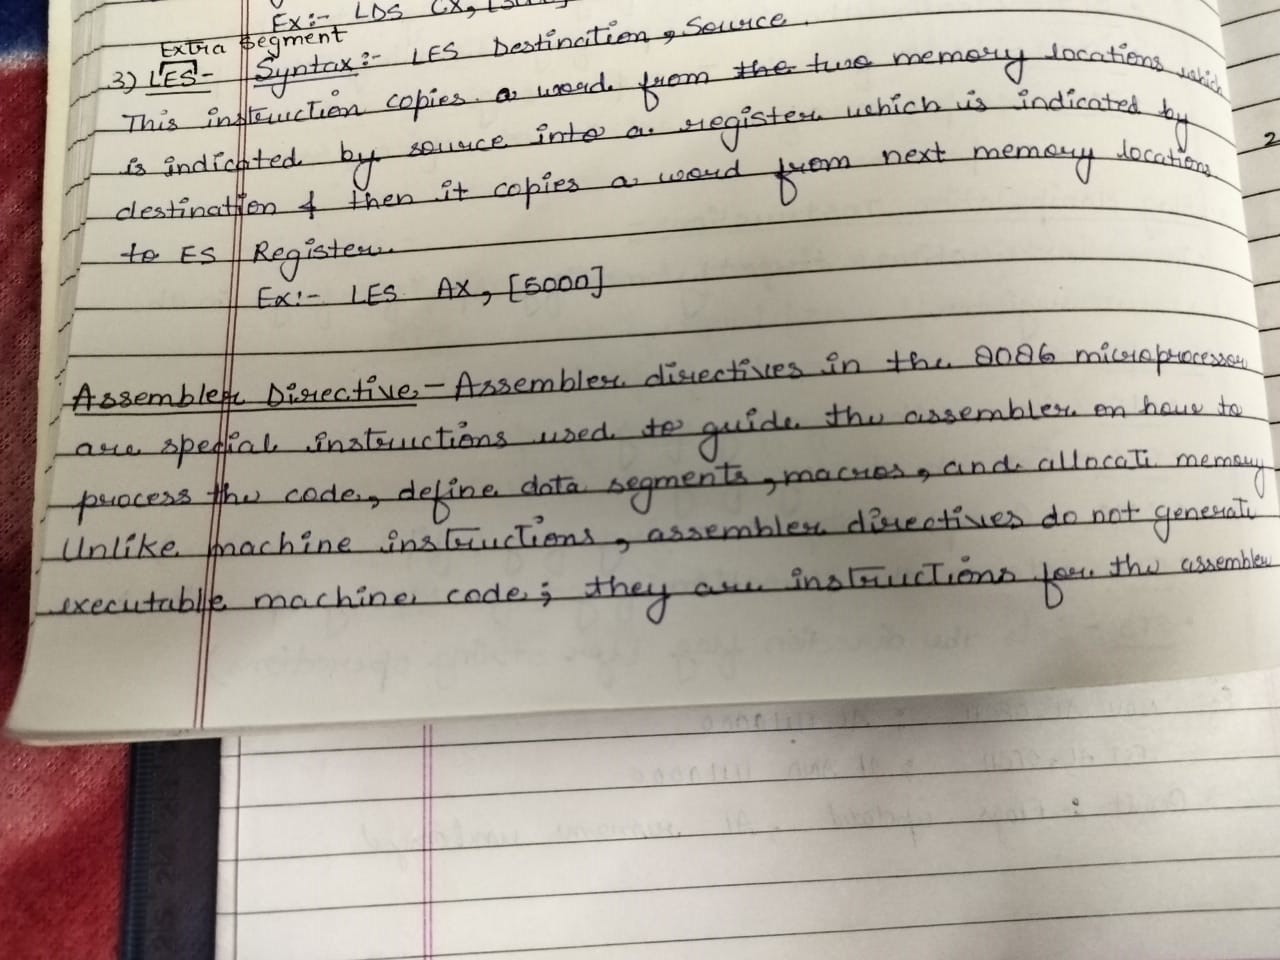 Ex:- LDS CX,
Extra Segment
3) LES- Syntax:- LES Destination, Source
This instruction copies a word from the two memory locations which
is indicated by source into a register which is indicated by
destination & then it copies a word from next memory locations
to ES Register.
Ex:- LES AX, [5000]
2
Assembler Directive - Assembler directives in the 8086 microprocessor
are special instructions used to guide the assembler on how to
process the code, define data segments, macros, and allocate memory
Unlike machine instructions, assembler directives do not generate
executable machine code; they are instructions for the assembler